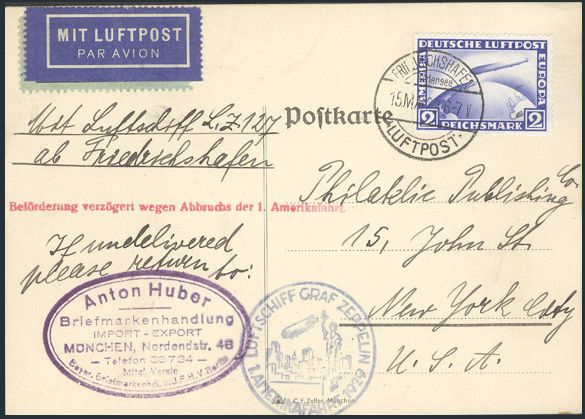 MIT LUFTPOST
PAR AVION
DEUTSCHE LUFTPOST
AMERIKA
EUROPA
2 REICHSMARK 2
FRIEDRICHSHAFEN
15.MAI
6-7
LUFTPOST
Postkarte
Mit Luftschiff L.Z.127
ab Friedrichshafen
Beförderung verzögert wegen Abbruchs der 1. Amerikafahrt.
If undelivered
please return to:
Philatelic Publishing Co
15, John St.
New York City
U.S.A.
Anton Huber
Briefmarkenhandlung
IMPORT - EXPORT
MÜNCHEN, Nordendstr. 48
Telefon 33734
LUFTSCHIFF GRAF ZEPPELIN
1. AMERIKAFAHRT 1929
C. F. Zeller, München